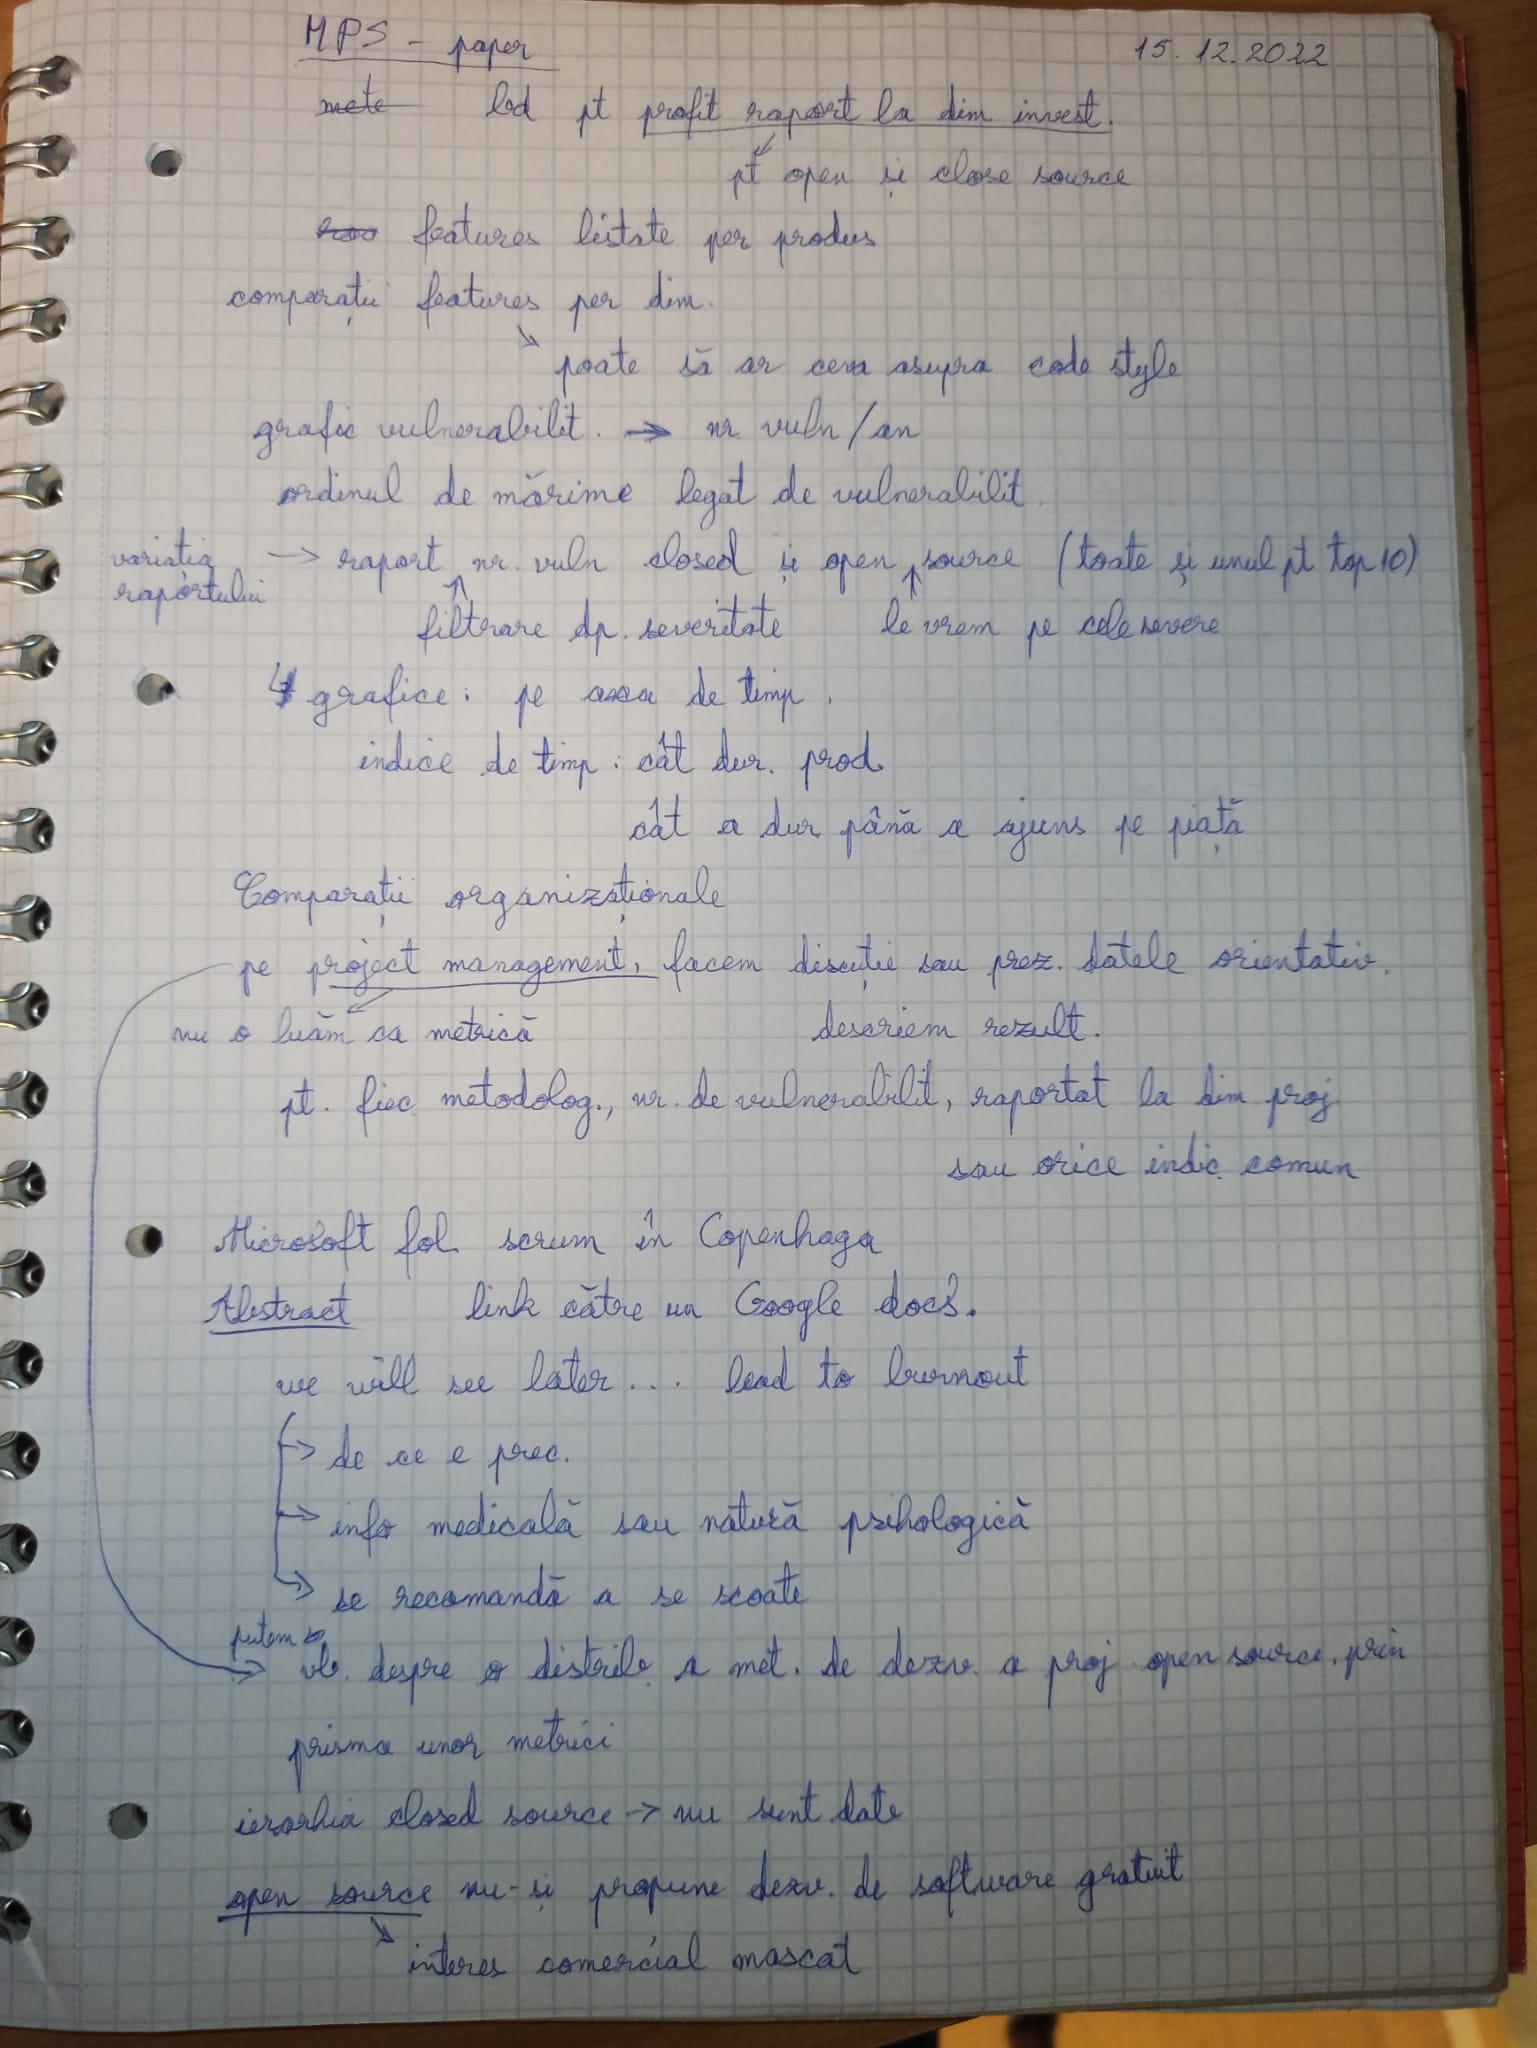 MPS - paper 15.12.2022
pt profit raport la dim invest.
pt open și close source
features listate per produs
comparații features per dim.
↘ poate să ar ceva asupra code style
grafic vulnerabilit. → nr. vuln/an
ordinul de mărime legat de vulnerabilit.
variația raportului → raport nr. vuln closed și open source (toate și unul pt top 10)
filtrare dp. severitate le vrem pe cele severe
grafice: pe axa de timp.
indice de timp: cât dur. prod
cât a dur până a ajuns pe piață
Comparații organizaționale
pe project management, facem discuție sau prez. datele orientativ.
nu o luăm ca metrică descriem rezult.
pt. fiec metodolog., nr. de vulnerabilit, raportat la dim proj
sau orice indic comun
Microsoft fol scrum în Copenhaga
Abstract link către un Google docs.
we will see later... lead to burnout
→ de ce e prec.
→ info medicală sau natură psihologică
→ se recomandă a se scoate
putem
→ vb. despre o distrib. a met. de dezv. a proj open source. prin
prisma unor metrici
ierarhia closed source → nu sunt date
open source nu-și propune dezv. de software gratuit
↘ interes comercial mascat